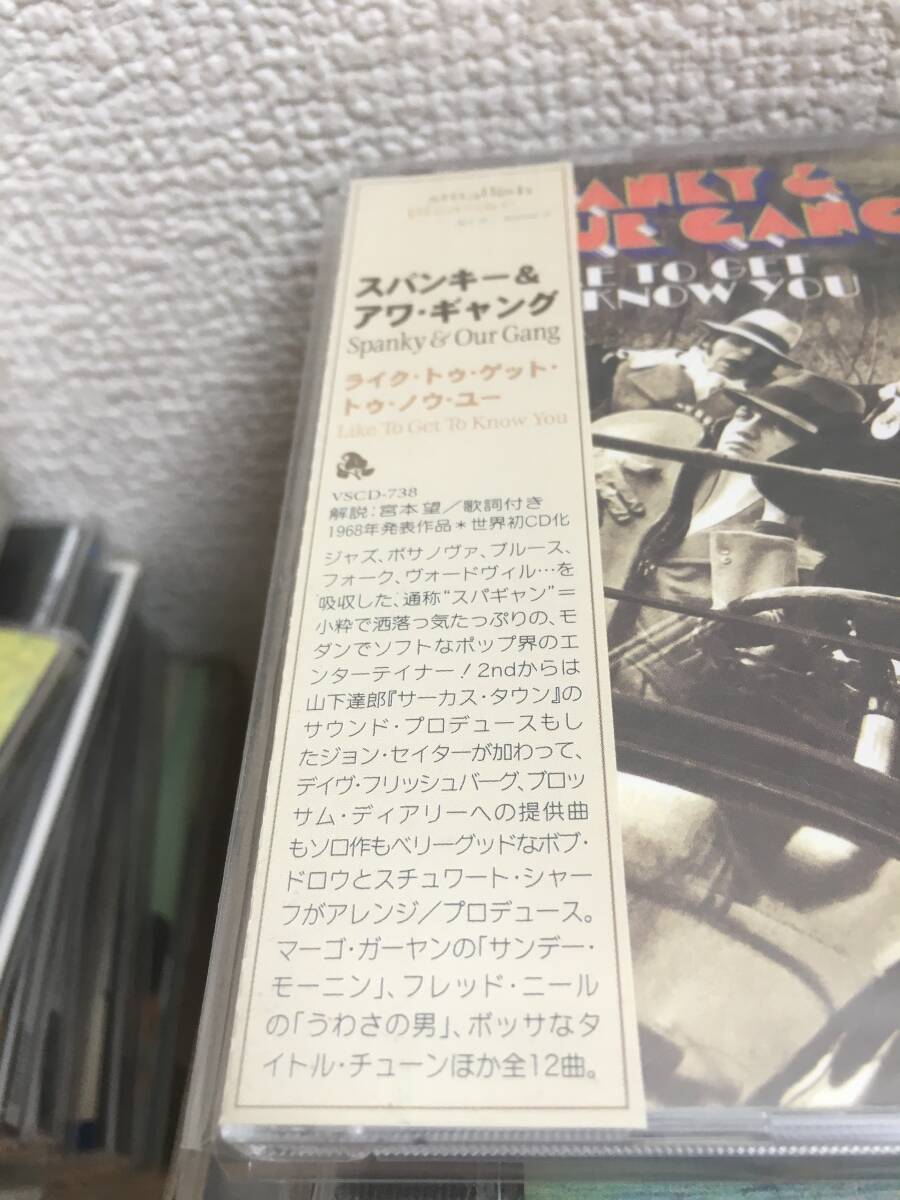 スパンキー＆
アワ・ギャング
Spanky & Our Gang
ライク・トゥ・ゲット・
トゥ・ノウ・ユー
Like To Get To Know You
VSCD-738
解説：宮本 望／歌詞付き
1968年発表作品＊世界初CD化
ジャズ、ボサノヴァ、ブルース、
フォーク、ヴォードヴィル…を
吸収した、通称“スパギャン”＝
小粋で洒落っ気たっぷりの、モ
ダンでソフトなポップ界のエ
ンターテイナー！2ndからは
山下達郎『サーカス・タウン』の
サウンド・プロデュースもし
たジョン・セイターが加わって、
デイヴ・フリッシュバーグ、ブロッ
サム・ディアリーへの提供曲
もソロ作もベリーグッドなボブ・
ドロウとスチュワート・シャー
フがアレンジ／プロデュース。
マーゴ・ガーヤンの「サンデー・
モーニン」、フレッド・ニール
の「うわさの男」、ボッサなタ
イトル・チューンほか全12曲。
ANKY &
UR GANG
E TO GET
KNOW YOU